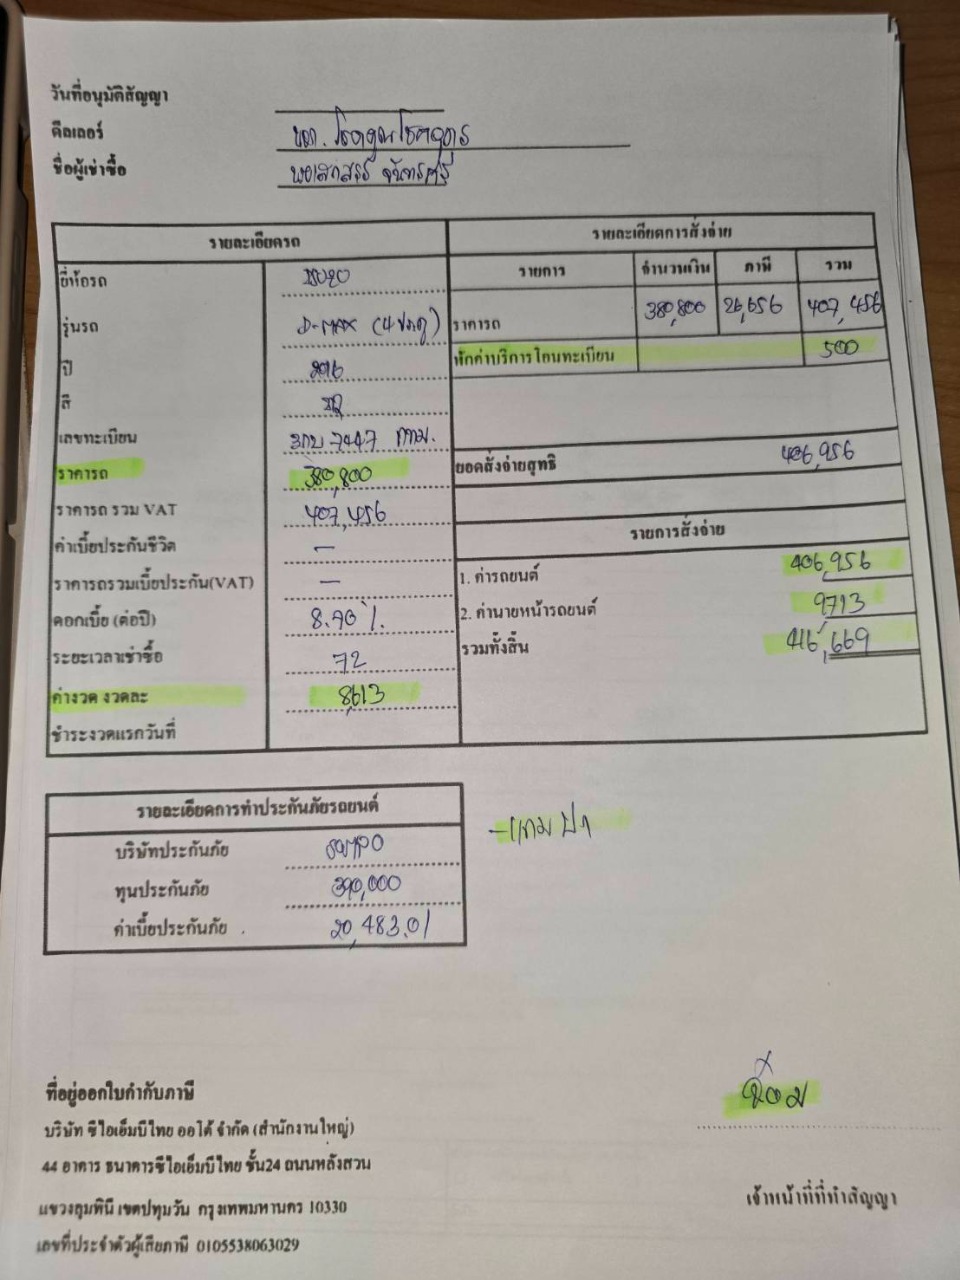 วันที่อนุมัติสัญญา
ดีลเลอร์ บจก.
ชื่อผู้เช่าซื้อ
รายละเอียดรถ
ยี่ห้อรถ
รุ่นรถ D-MAX (4ประตู)
ปี 2016
สี
เลขทะเบียน 7447 กทม.
ราคารถ 380,800
ราคารถ รวม VAT 407,456
ค่าเบี้ยประกันชีวิต -
ราคารถรวมเบี้ยประกัน(VAT) -
ดอกเบี้ย (ต่อปี) 8.90%
ระยะเวลาเช่าซื้อ 72
ค่างวด งวดละ 8,613
ชำระงวดแรกวันที่
รายละเอียดการสั่งจ่าย
รายการ จำนวนเงิน ภาษี รวม
ราคารถ 380,800 26,656 407,456
หักค่าบริการโอนทะเบียน 500
ยอดสั่งจ่ายสุทธิ 406,956
รายการสั่งจ่าย
1. ค่ารถยนต์ 406,956
2. ค่านายหน้ารถยนต์ 9713
รวมทั้งสิ้น 416,669
รายละเอียดการทำประกันภัยรถยนต์
บริษัทประกันภัย
ทุนประกันภัย 390,000
ค่าเบี้ยประกันภัย 20,483.01
- แถม ป.1
ที่อยู่ออกใบกำกับภาษี
บริษัท ซีไอเอ็มบีไทย ออโต้ จำกัด (สำนักงานใหญ่)
44 อาคาร ธนาคารซีไอเอ็มบีไทย ชั้น24 ถนนหลังสวน
แขวงลุมพินี เขตปทุมวัน กรุงเทพมหานคร 10330
เลขที่ประจำตัวผู้เสียภาษี 0105538063029
เจ้าหน้าที่ที่ทำสัญญา